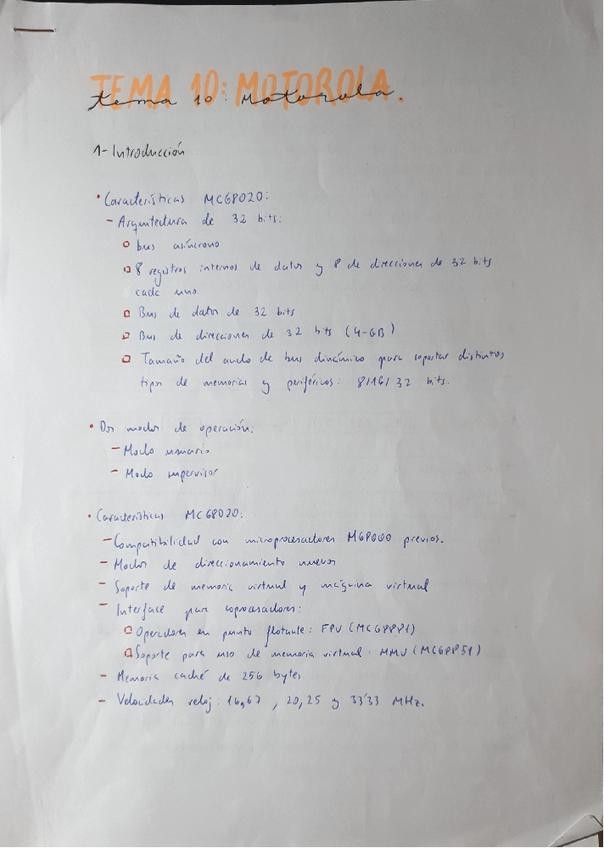 TEMA 10: MOTOROLA.
tema 10: Motorola.
1- Introducción
• Características MC68020:
- Arquitectura de 32 bits:
bus asíncrono
8 registros internos de datos y 8 de direcciones de 32 bits
cada uno
Bus de datos de 32 bits
Bus de direcciones de 32 bits (4-GB)
Tamaño del ancho de bus dinámico para soportar distintos
tipos de memorias y periféricos: 8/16/32 bits.
• Dos modos de operación:
- Modo usuario
- Modo supervisor
• Características MC68020:
- Compatibilidad con microprocesadores M68000 previos.
- Modos de direccionamiento nuevos
- Soporte de memoria virtual y máquina virtual
- Interface para coprocesadores:
Operadores en punto flotante: FPU (MC68881)
Soporte para uso de memoria virtual: MMU (MC68851)
- Memoria caché de 256 bytes
- Velocidades reloj: 16,67, 20, 25 y 33'33 MHz.